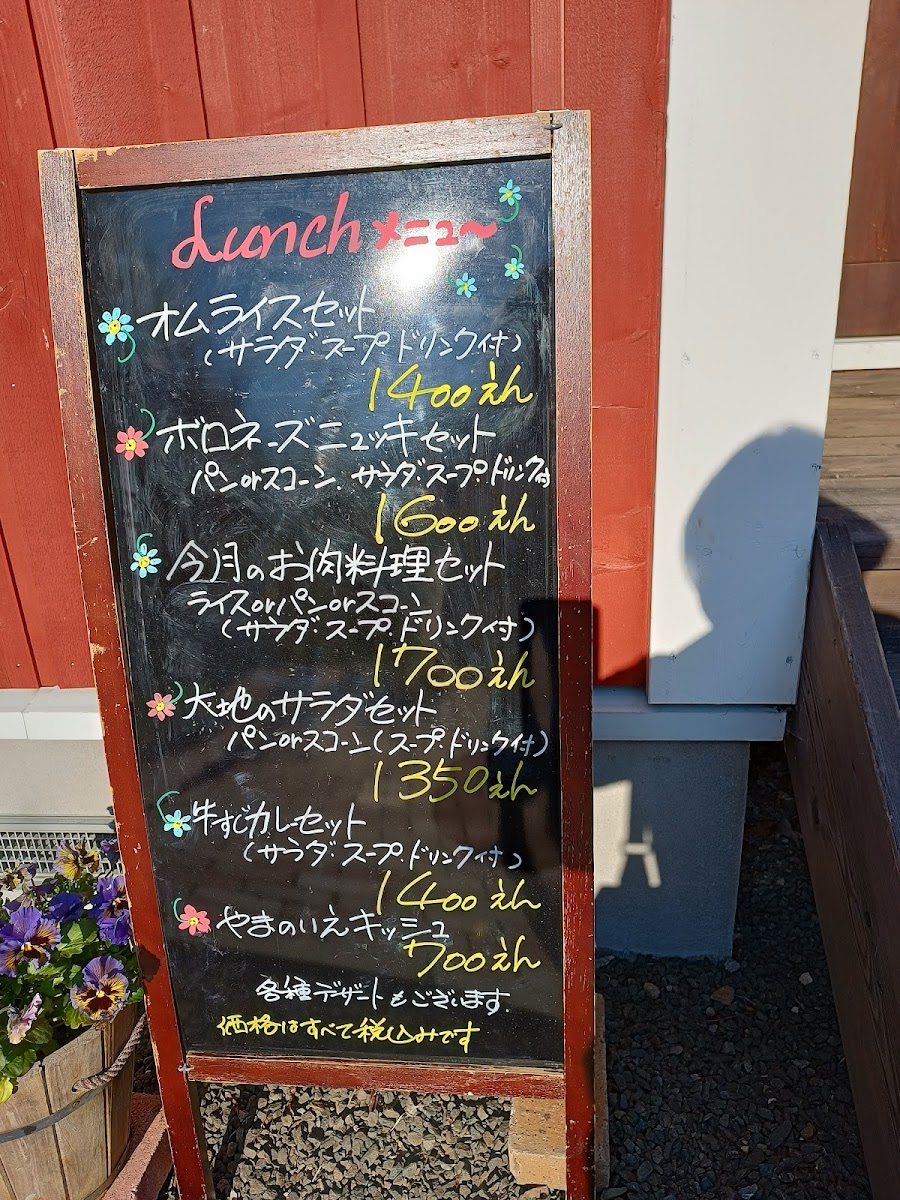 Lunch メニュ〜
オムライスセット
(サラダ・スープ・ドリンク付)
1400えん
ボロネーズニュッキセット
パンorスコーン、サラダ・スープ・ドリンク付
1600えん
今月のお肉料理セット
ライスorパンorスコーン
(サラダ・スープ・ドリンク付)
1700えん
大地のサラダセット
パンorスコーン(スープ・ドリンク付)
1350えん
牛すじカレーセット
(サラダ・スープ・ドリンク付)
1400えん
やまのいえキッシュ
700えん
各種デザートもございます.
価格はすべて税込みです